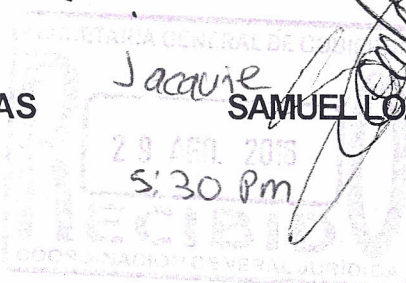 SECRETARIA GENERAL DE GOBIE
Jacquie
AS SAMUEL LO
29 AGO. 2016
5:30 Pm
RECIBIDO
COORDINACION GENERAL JURIDICA